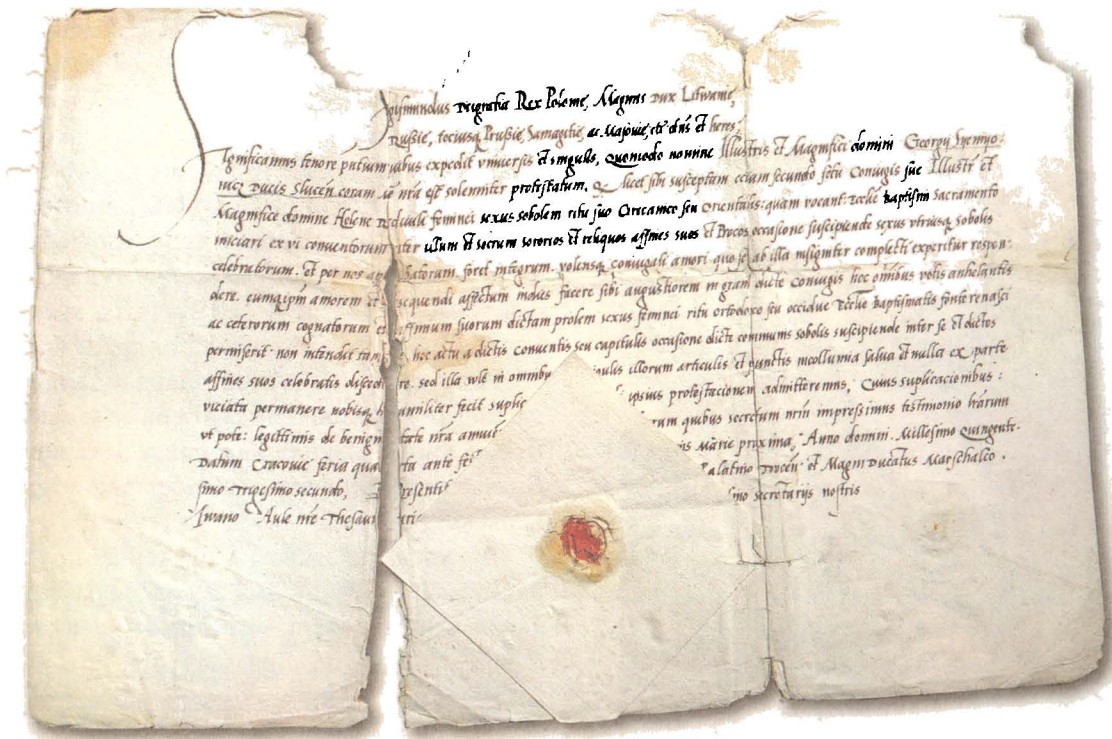 Sigismundus Dei gratia Rex Polonie, Magnus Dux Litwanie,
Russie, tociusq, Prussie, Samagitie, ac Masovie, etc dns et heres.
Significamus tenore putium quibus expedit vniuersis et singulis, Quomodo nomine Illustris et Magnifici domini Georgij
Ducis Slucen. coram nra est solemniter protestatum, licet sibi susceptam eciam secundo fetu Coniugis sue Illustr et
Magnifice domine Helene Radivile feminei sexus sobolem ritu suo Grecanico seu Orientalis: quam vocant: Ecclie baptismi Sacramento
iniciari ex vi conventorum inter illum et socrum sororios et reliquos affines suos et Procos occasione suscipiende sexus vtriusq sobolis
celebratorum. et per nos foret integrum. volensq coniugali amori quo se ab illa insigniter complecti experitur respon-
dere. eumqipm amorem et sequendi affectum indies facere sibi augustiorem in gram dicte Coniugis hoc omnibus votis anhelantis
ac ceterorum cognatorum et affinium suorum dictam prolem sexus feminei ritu orthodoxo seu occidue Ecclie baptismatis fonte renasci
permiserit: non intendit hoc actu a dictis Conuentis seu capitulis occasione dicte communis sobolis suscipiende inter se et dictos
affines suos celebratis sed illa in omnibus illorum articulis et punctis incollumia salua et nulla ex parte
viciata permanere nobisq humiliter fecit ipsius protestacionem admitteremus, Cuius suplicacionibus:
vt pote: legittimis de benignitate nra quibus secretum nrm impressimus testimonio
Datum Cracouie feria quarta ante Marie proxima, Anno domini. Millesimo Quingente-
simo Trigesimo secundo, et Magni Ducatus Marschalco.
Iwano Aule nre secretarijs nostris